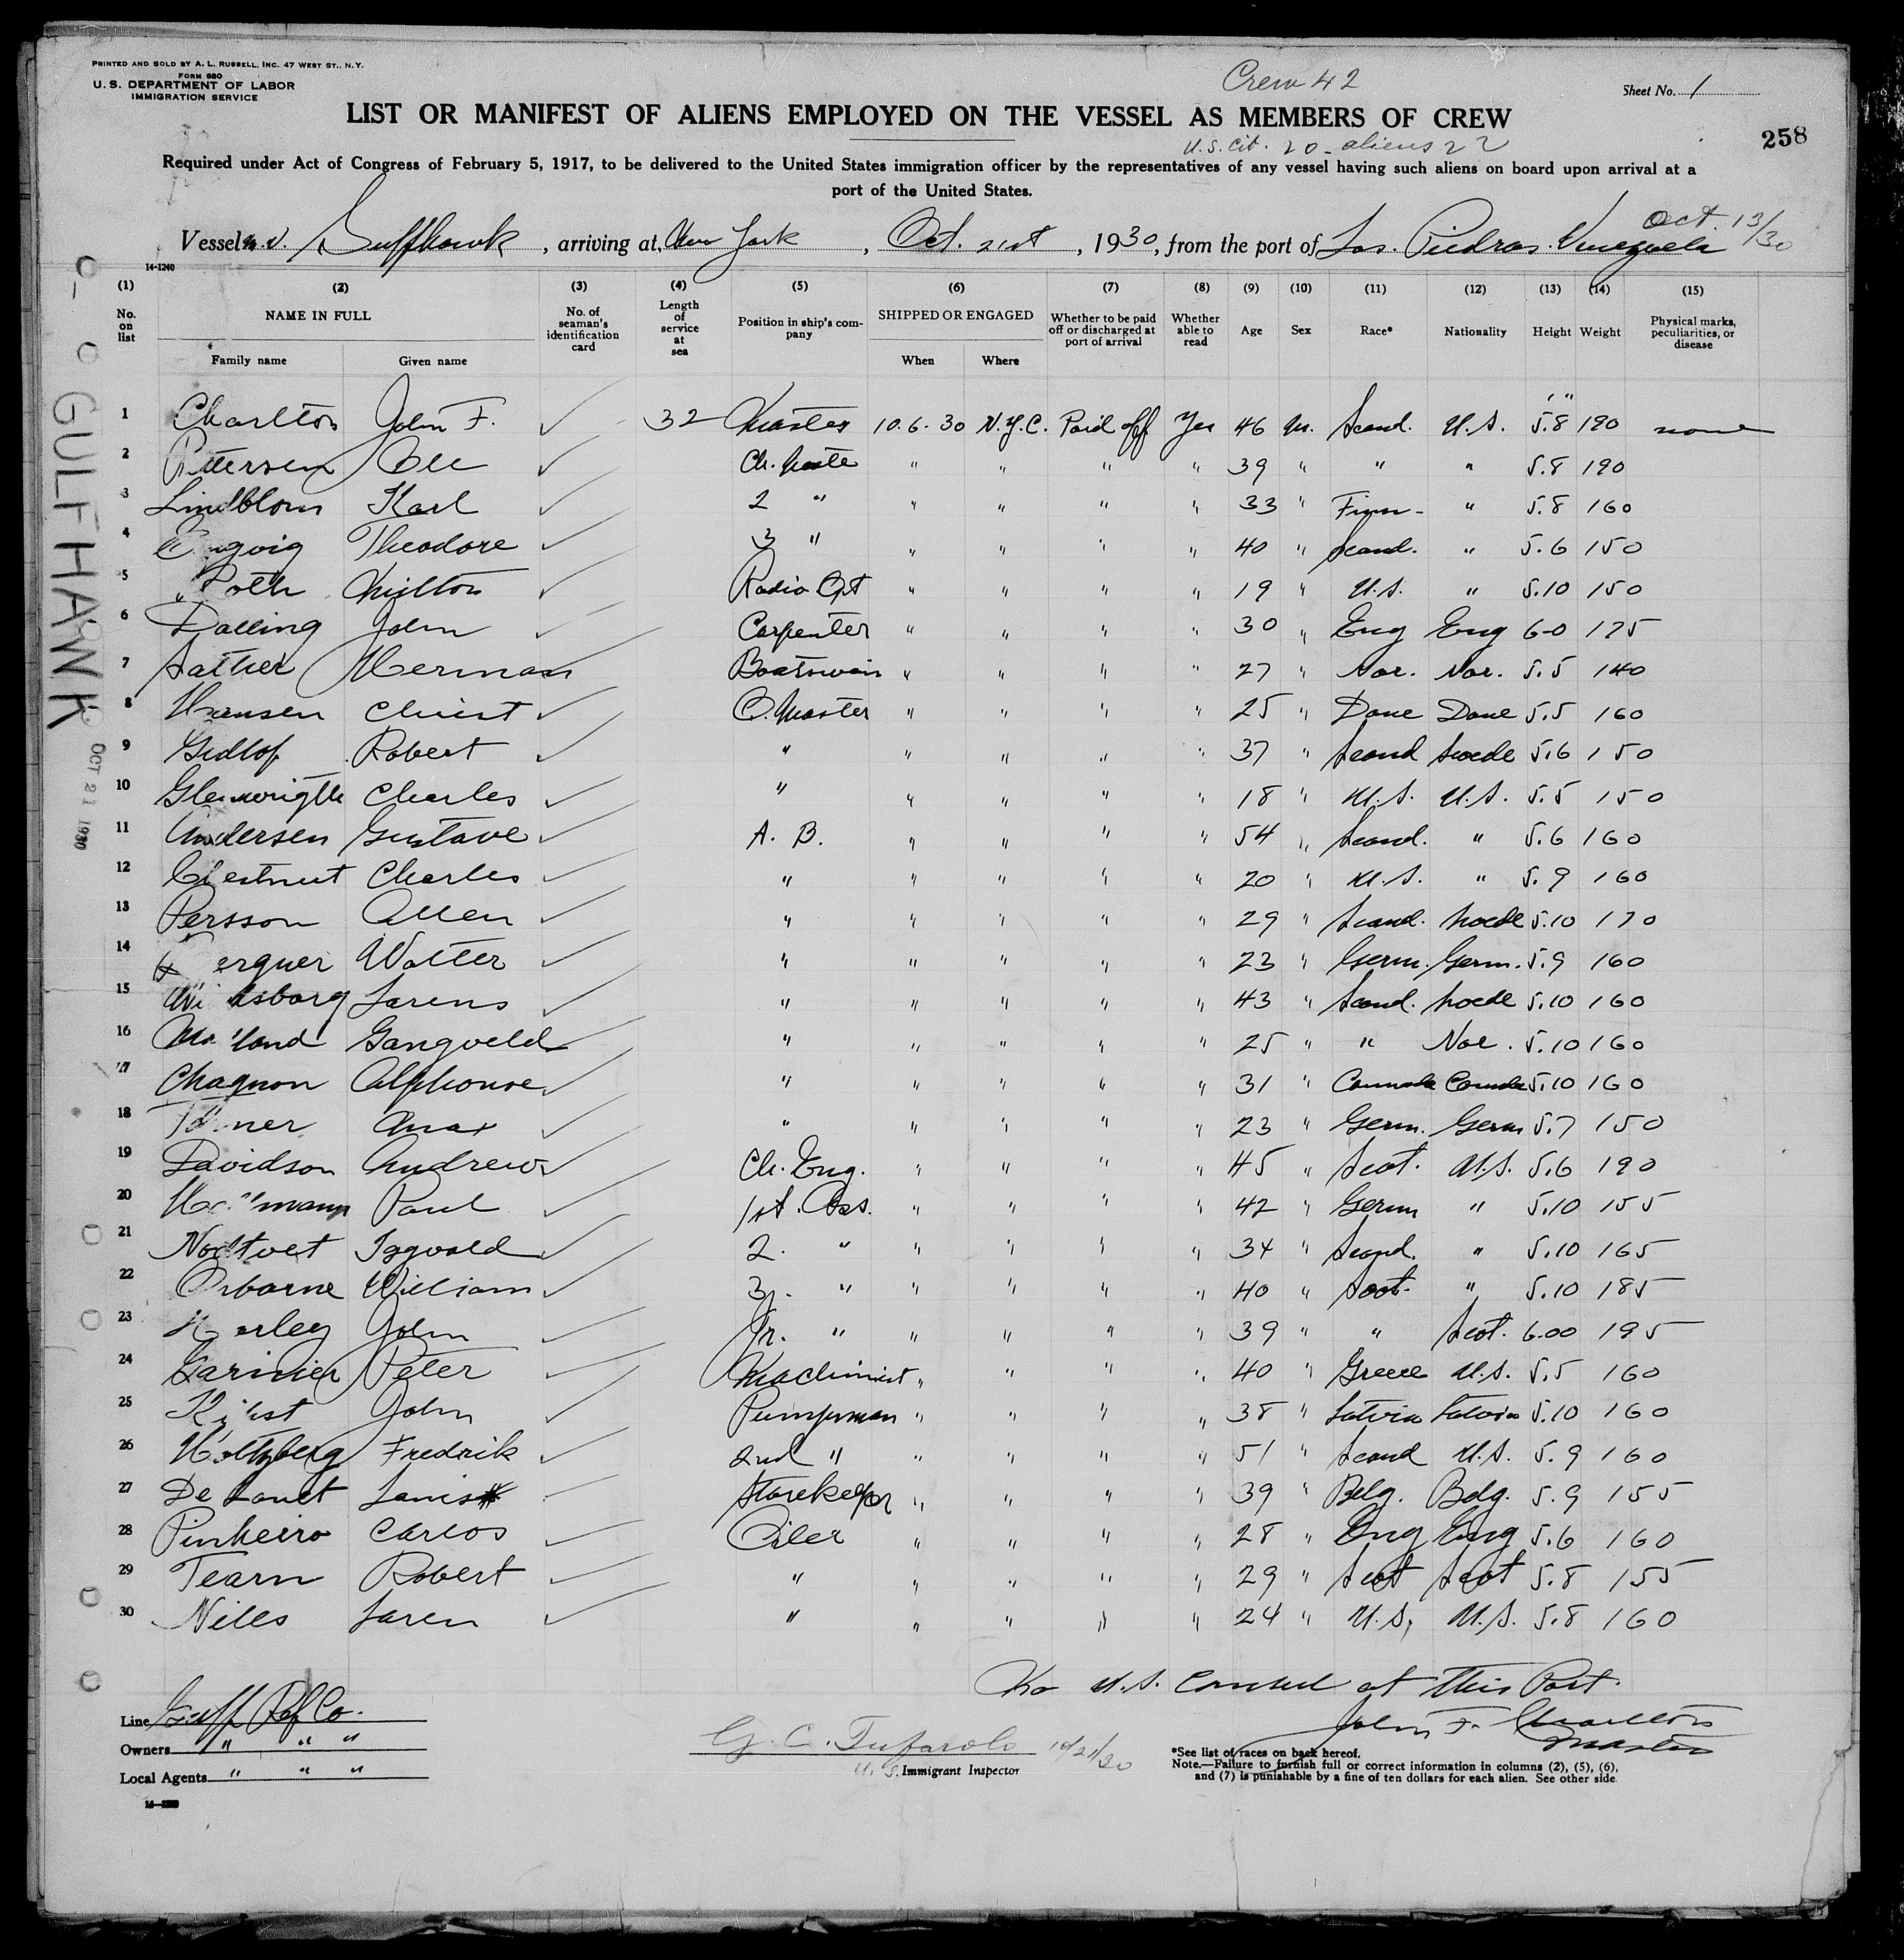 PRINTED AND SOLD BY A. L. RUSSELL, INC. 47 WEST ST., N.Y.
FORM 680
U. S. DEPARTMENT OF LABOR
IMMIGRATION SERVICE
Crew 42
Sheet No. 1
LIST OR MANIFEST OF ALIENS EMPLOYED ON THE VESSEL AS MEMBERS OF CREW
258
U.S. Cit. 20 - aliens 22
Required under Act of Congress of February 5, 1917, to be delivered to the United States immigration officer by the representatives of any vessel having such aliens on board upon arrival at a
port of the United States.
Oct. 13/30
Vessel Gulfhawk, arriving at New York, Oct. 21st, 1930, from the port of Las Piedras Venezuela
14-1240
(1) (2) (3) (4) (5) (6) (7) (8) (9) (10) (11) (12) (13) (14) (15)
No. on list NAME IN FULL No. of seaman's identification card Length of service at sea Position in ship's company SHIPPED OR ENGAGED Whether to be paid off or discharged at port of arrival Whether able to read Age Sex Race* Nationality Height Weight Physical marks, peculiarities, or disease
Family name Given name When Where
1 Charlton John F. ✓ 32 Master 10.6.30 N.Y.C. Paid off Yes 46 M. Scand. U.S. 5.8 190 none
2 Pettersen Ole ✓ Ch. Mate " " " " 39 " " " 5.8 190
3 Lindblom Karl ✓ 2 " " " " " 33 " Finn- " 5.8 160
4 Theodore ✓ 3 " " " " " 40 " Scand. " 5.6 150
5 Milton ✓ Radio Opt " " " " 19 " U.S. " 5.10 150
6 Dalling John ✓ Carpenter " " " " 30 " Eng Eng 6-0 175
7 Sather Herman ✓ Boatswain " " " " 27 " Nor. Nor. 5.5 140
8 Hansen Christ ✓ Q. Master " " " " 25 " Dane Dane 5.5 160
9 Gidlof Robert ✓ " " " " " 37 " Scand Swede 5.6 150
10 Charles ✓ " " " " " 18 " U.S. U.S. 5.5 150
11 Andersen Gustave ✓ A. B. " " " " 54 " Scand. " 5.6 160
12 Chestnut Charles ✓ " " " " " 20 " U.S. " 5.9 160
13 Persson Allen ✓ " " " " " 29 " Scand. Swede 5.10 170
14 Walter ✓ " " " " " 23 " Germ. Germ. 5.9 160
15 Larens ✓ " " " " " 43 " Scand. Swede 5.10 160
16 Gangveld ✓ " " " " " 25 " " Nor. 5.10 160
17 Chagnon Alphonse ✓ " " " " " 31 " Cannada Canada 5.10 160
18 Max ✓ " " " " " 23 " Germ. Germ 5.7 150
19 Davidson Andrew ✓ Ch. Eng. " " " " 45 " Scot. U.S. 5.6 190
20 Paul ✓ 1st. Ass. " " " " 42 " Germ " 5.10 155
21 Nodtvet ✓ 2. " " " " " 34 " Scand. " 5.10 165
22 Osborne William ✓ 3. " " " " " 40 " Scot. " 5.10 185
23 John ✓ Jr. " " " " " 39 " " Scot. 6.00 195
24 Peter ✓ Machinist " " " " 40 " Greece U.S. 5.5 160
25 John ✓ Pumpman " " " " 38 " Latvia Latvia 5.10 160
26 Holtzberg Fredrik ✓ 2nd " " " " " 51 " Scand U.S. 5.9 160
27 Louis Storekeeper " " " " 39 " Belg. Belg. 5.9 155
28 Pinheiro Carlos ✓ Oiler " " " " 28 " Eng Eng 5.6 160
29 Tearn Robert ✓ " " " " " 29 " Scot Scot 5.8 155
30 Niles Laren ✓ " " " " " 24 " U.S. U.S. 5.8 160
GULFHAWK
OCT 21 1930
No U.S. Consul at this Port.
John F. Charlton
Master
Line Gulf Ref Co.
Owners " " "
Local Agents " " "
10/21/30
U. S. Immigrant Inspector
*See list of races on back hereof.
Note.—Failure to furnish full or correct information in columns (2), (5), (6),
and (7) is punishable by a fine of ten dollars for each alien. See other side